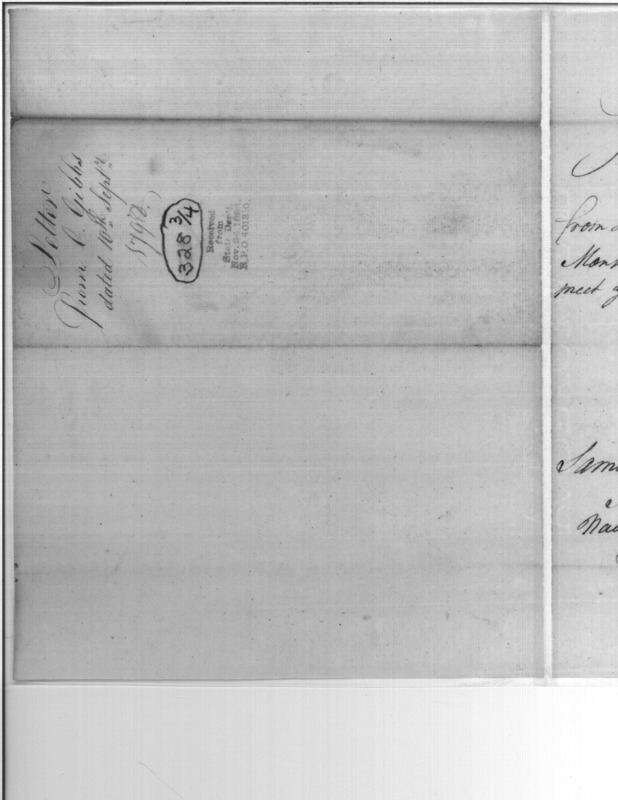 Letter
From C. Gibbs
dated 10th Septr
1798.
328 3/4
Received
from
State Dept.
R.P.O 401310.
from
meet
Sam